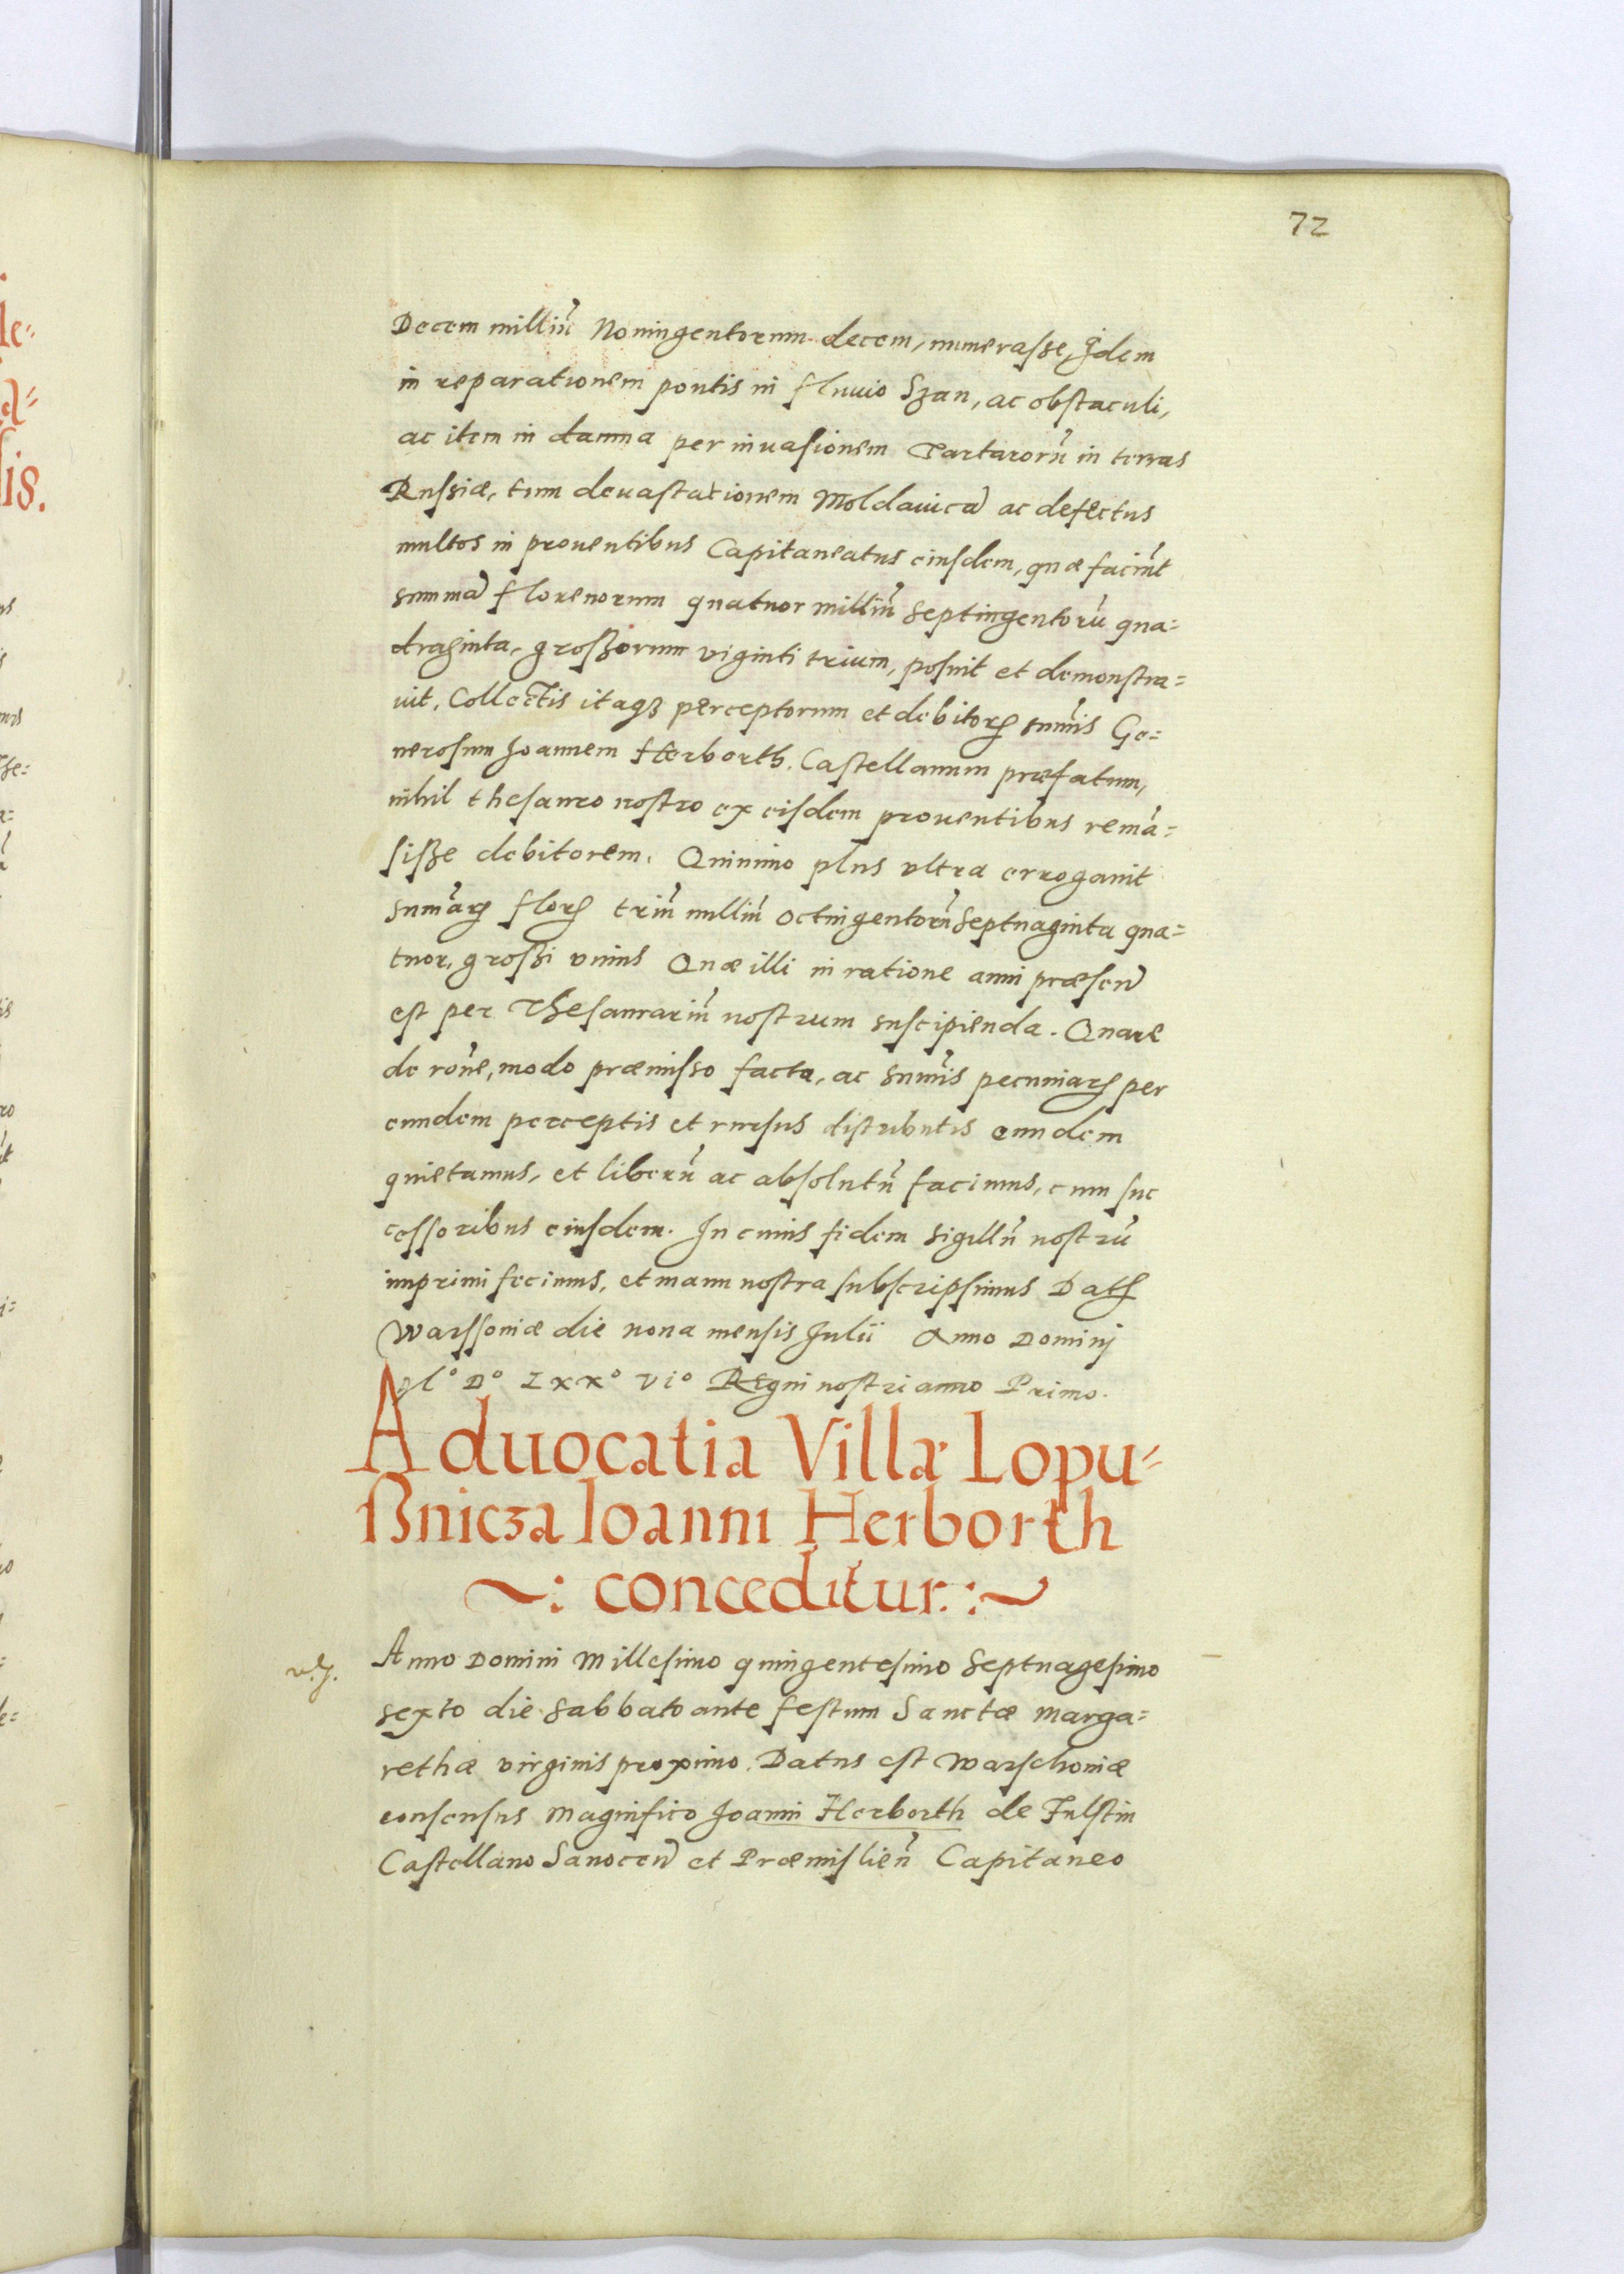 72
Decem milliũ Noningentorum decem, numerasse, Idem
in reparationem pontis in fluuio Szan, ac obstaculi,
ac item in damna per inuasionem Tartarorũ in terras
Russiæ, tum deuastationem Moldauicã ac defectus
multos in prouentibus Capitaneatus eiusdem, quæ faciũt
summã florenorum quatuor milliũ septingentorũ qua=
draginta, großorum viginti trium, posuit et demonstra=
uit, Collectis itaqꝫ perceptorum et debitorꝝ sum̃is Ge=
nerosum Joannem Herborth, Castellanum præfatum,
nihil thesauro nostro ex eisdem prouentibus remã=
sisße debitorem. Quinimo plus vltra errogauit
sum̃arꝝ florꝝ triũ milliũ octingentorũ septuaginta qua=
tuor, großi vnius Quæ illi in ratione anni præsen̄
est per Thesaurariũ nostrum suscipienda. Quare
de rõne, modo præmisso facta, ac sum̃is pecuniarꝝ per
eundem perceptis et rursus distributis eundem
quietamus, et liberũ ac absolutũ facimus, cum suc
cessoribus eiusdem. In cuius fidem sigillũ nostrũ
imprimi fecimus, et manu nostra subscripsimus Datꝭ
Warssouiæ die nona mensis Julii Anno Dominj
Mº Dº Lxxº viº Regni nostri anno Primo.
Aduocatia Villæ Lopu=
ßnicza Ioanni Herborth
~: conceditur. :~
Anno Domini Millesimo quingentesimo Septuagesimo
sexto die Sabbato ante festum Sanctæ Marga=
rethæ virginis proximo. Datus est Warschouiæ
consensus Magnifico Joanni Herborth de Fulstin
Castellano Sanocen̄ et Præmislien̄ Capitaneo